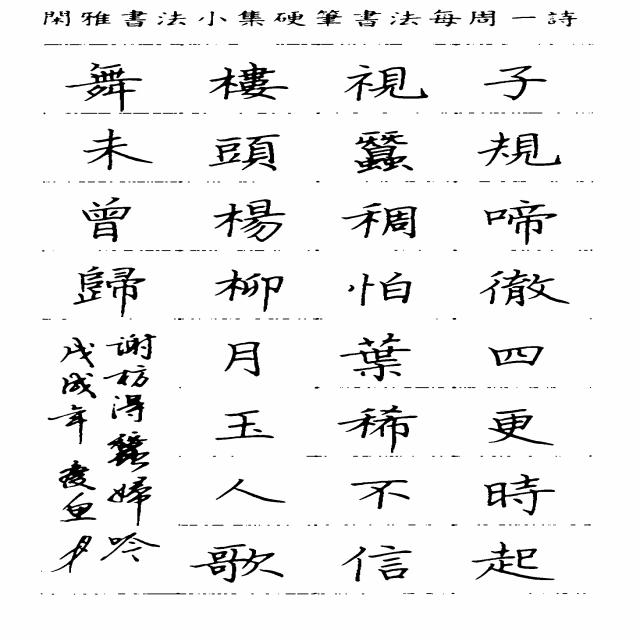 閑雅書法小集硬筆書法每周一詩
子規啼徹四更時起
視蠶稠怕葉稀不信
樓頭楊柳月玉人歌
舞未曾歸
謝枋得蠶婦吟
戊戌年